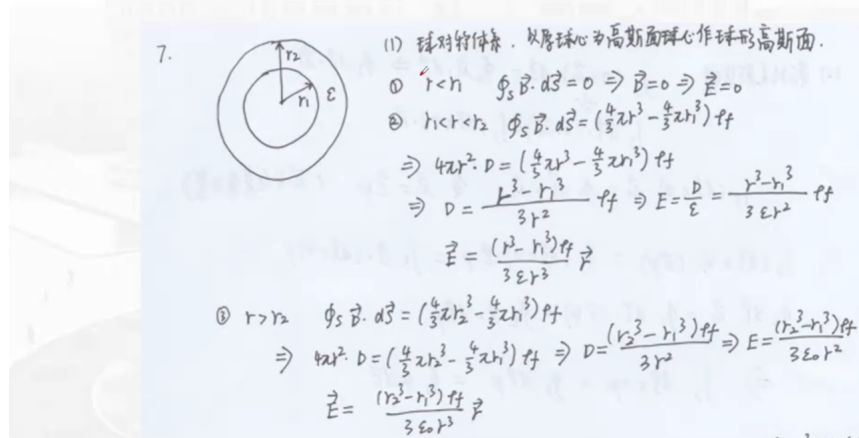 7.
r₂
r₁
ε
(1) 球对称体系，以原球心为高斯面球心作球形高斯面.
① r<r₁ ∮ₛ D⃗·dS⃗=0 ⇒ D⃗=0 ⇒ E⃗=0
② r₁<r<r₂ ∮ₛ D⃗·dS⃗=(4/3 πr³ - 4/3 πr₁³) ρf
⇒ 4πr²·D = (4/3 πr³ - 4/3 πr₁³) ρf
⇒ D = (r³-r₁³)/(3r²) ρf ⇒ E = D/ε = (r³-r₁³)/(3εr²) ρf
E⃗ = (r³-r₁³)ρf/(3εr³) r⃗
③ r>r₂ ∮ₛ D⃗·dS⃗=(4/3 πr₂³ - 4/3 πr₁³) ρf
⇒ 4πr²·D = (4/3 πr₂³ - 4/3 πr₁³) ρf ⇒ D = (r₂³-r₁³)ρf/(3r²) ⇒ E = (r₂³-r₁³)ρf/(3ε₀r²)
E⃗ = (r₂³-r₁³)ρf/(3ε₀r³) r⃗